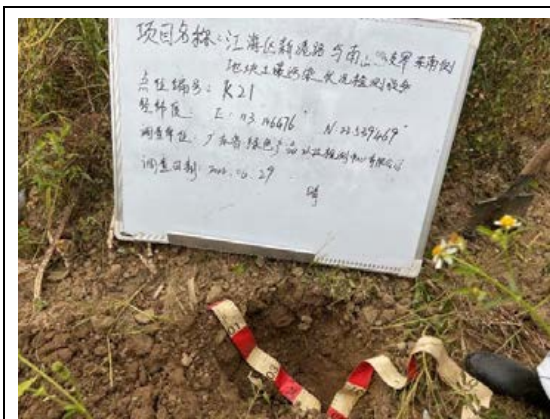 项目名称:江海区新港路与南山路交界东南侧
地块土壤污染状况检测报告
点位编号:K21
经纬度: E:113.146476° N:22.539469°
调查单位:广东省绿色产品认证检测中心有限公司
调查日期: .29
晴